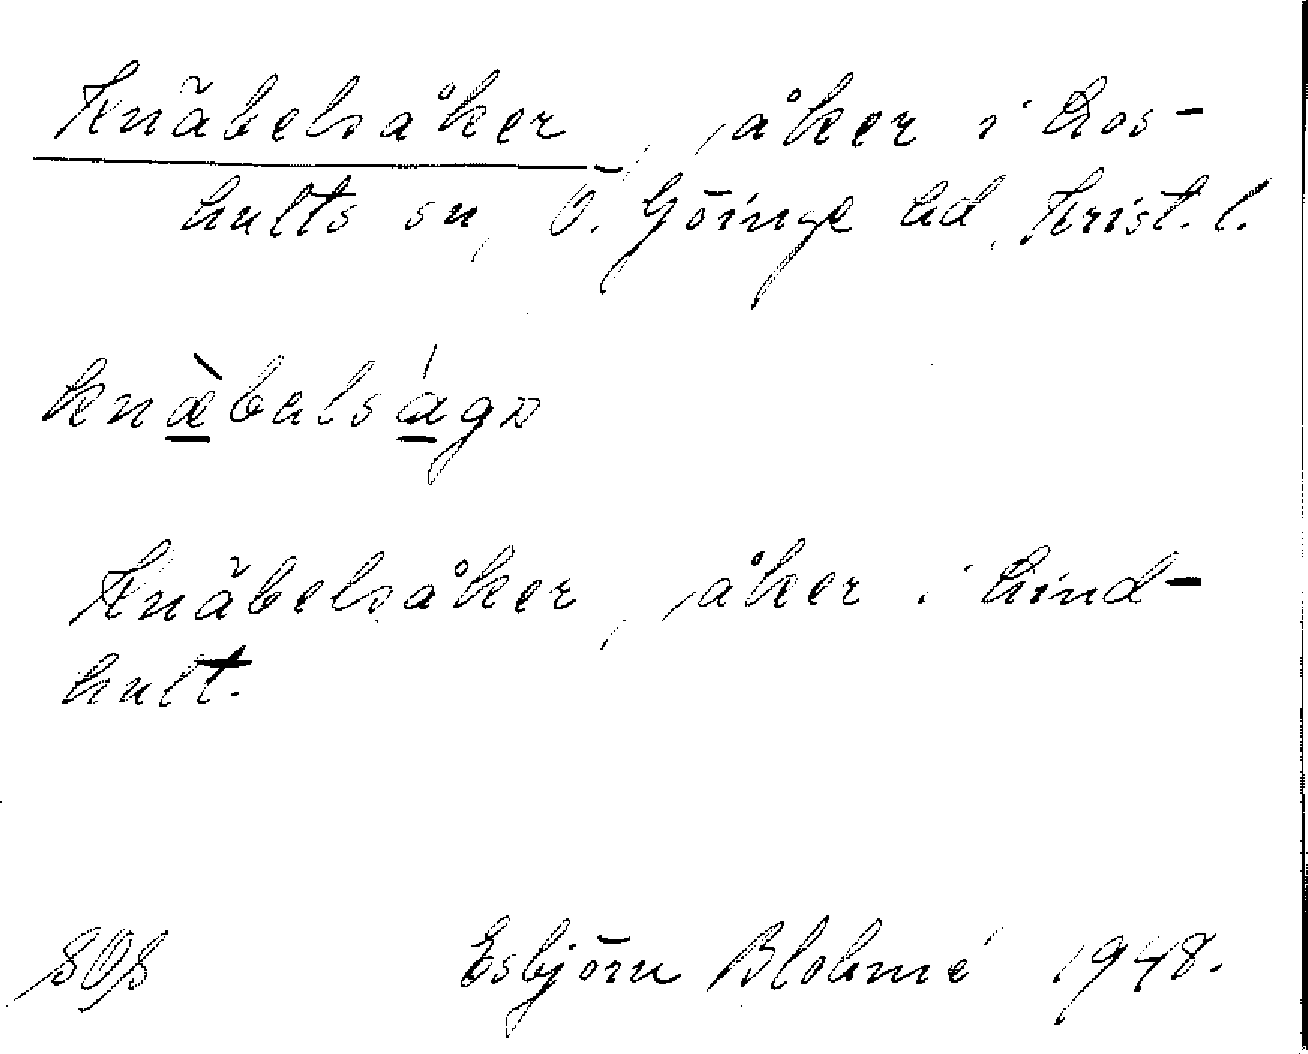 Knäbelsåker, åker i Los-
hults sn, Ö. Göinge hd, Krist. l.
knæ̀bəlságɒ
Knäbelsåker, åker i Lind-
hult.
Esbjörn Blohmé 1948.